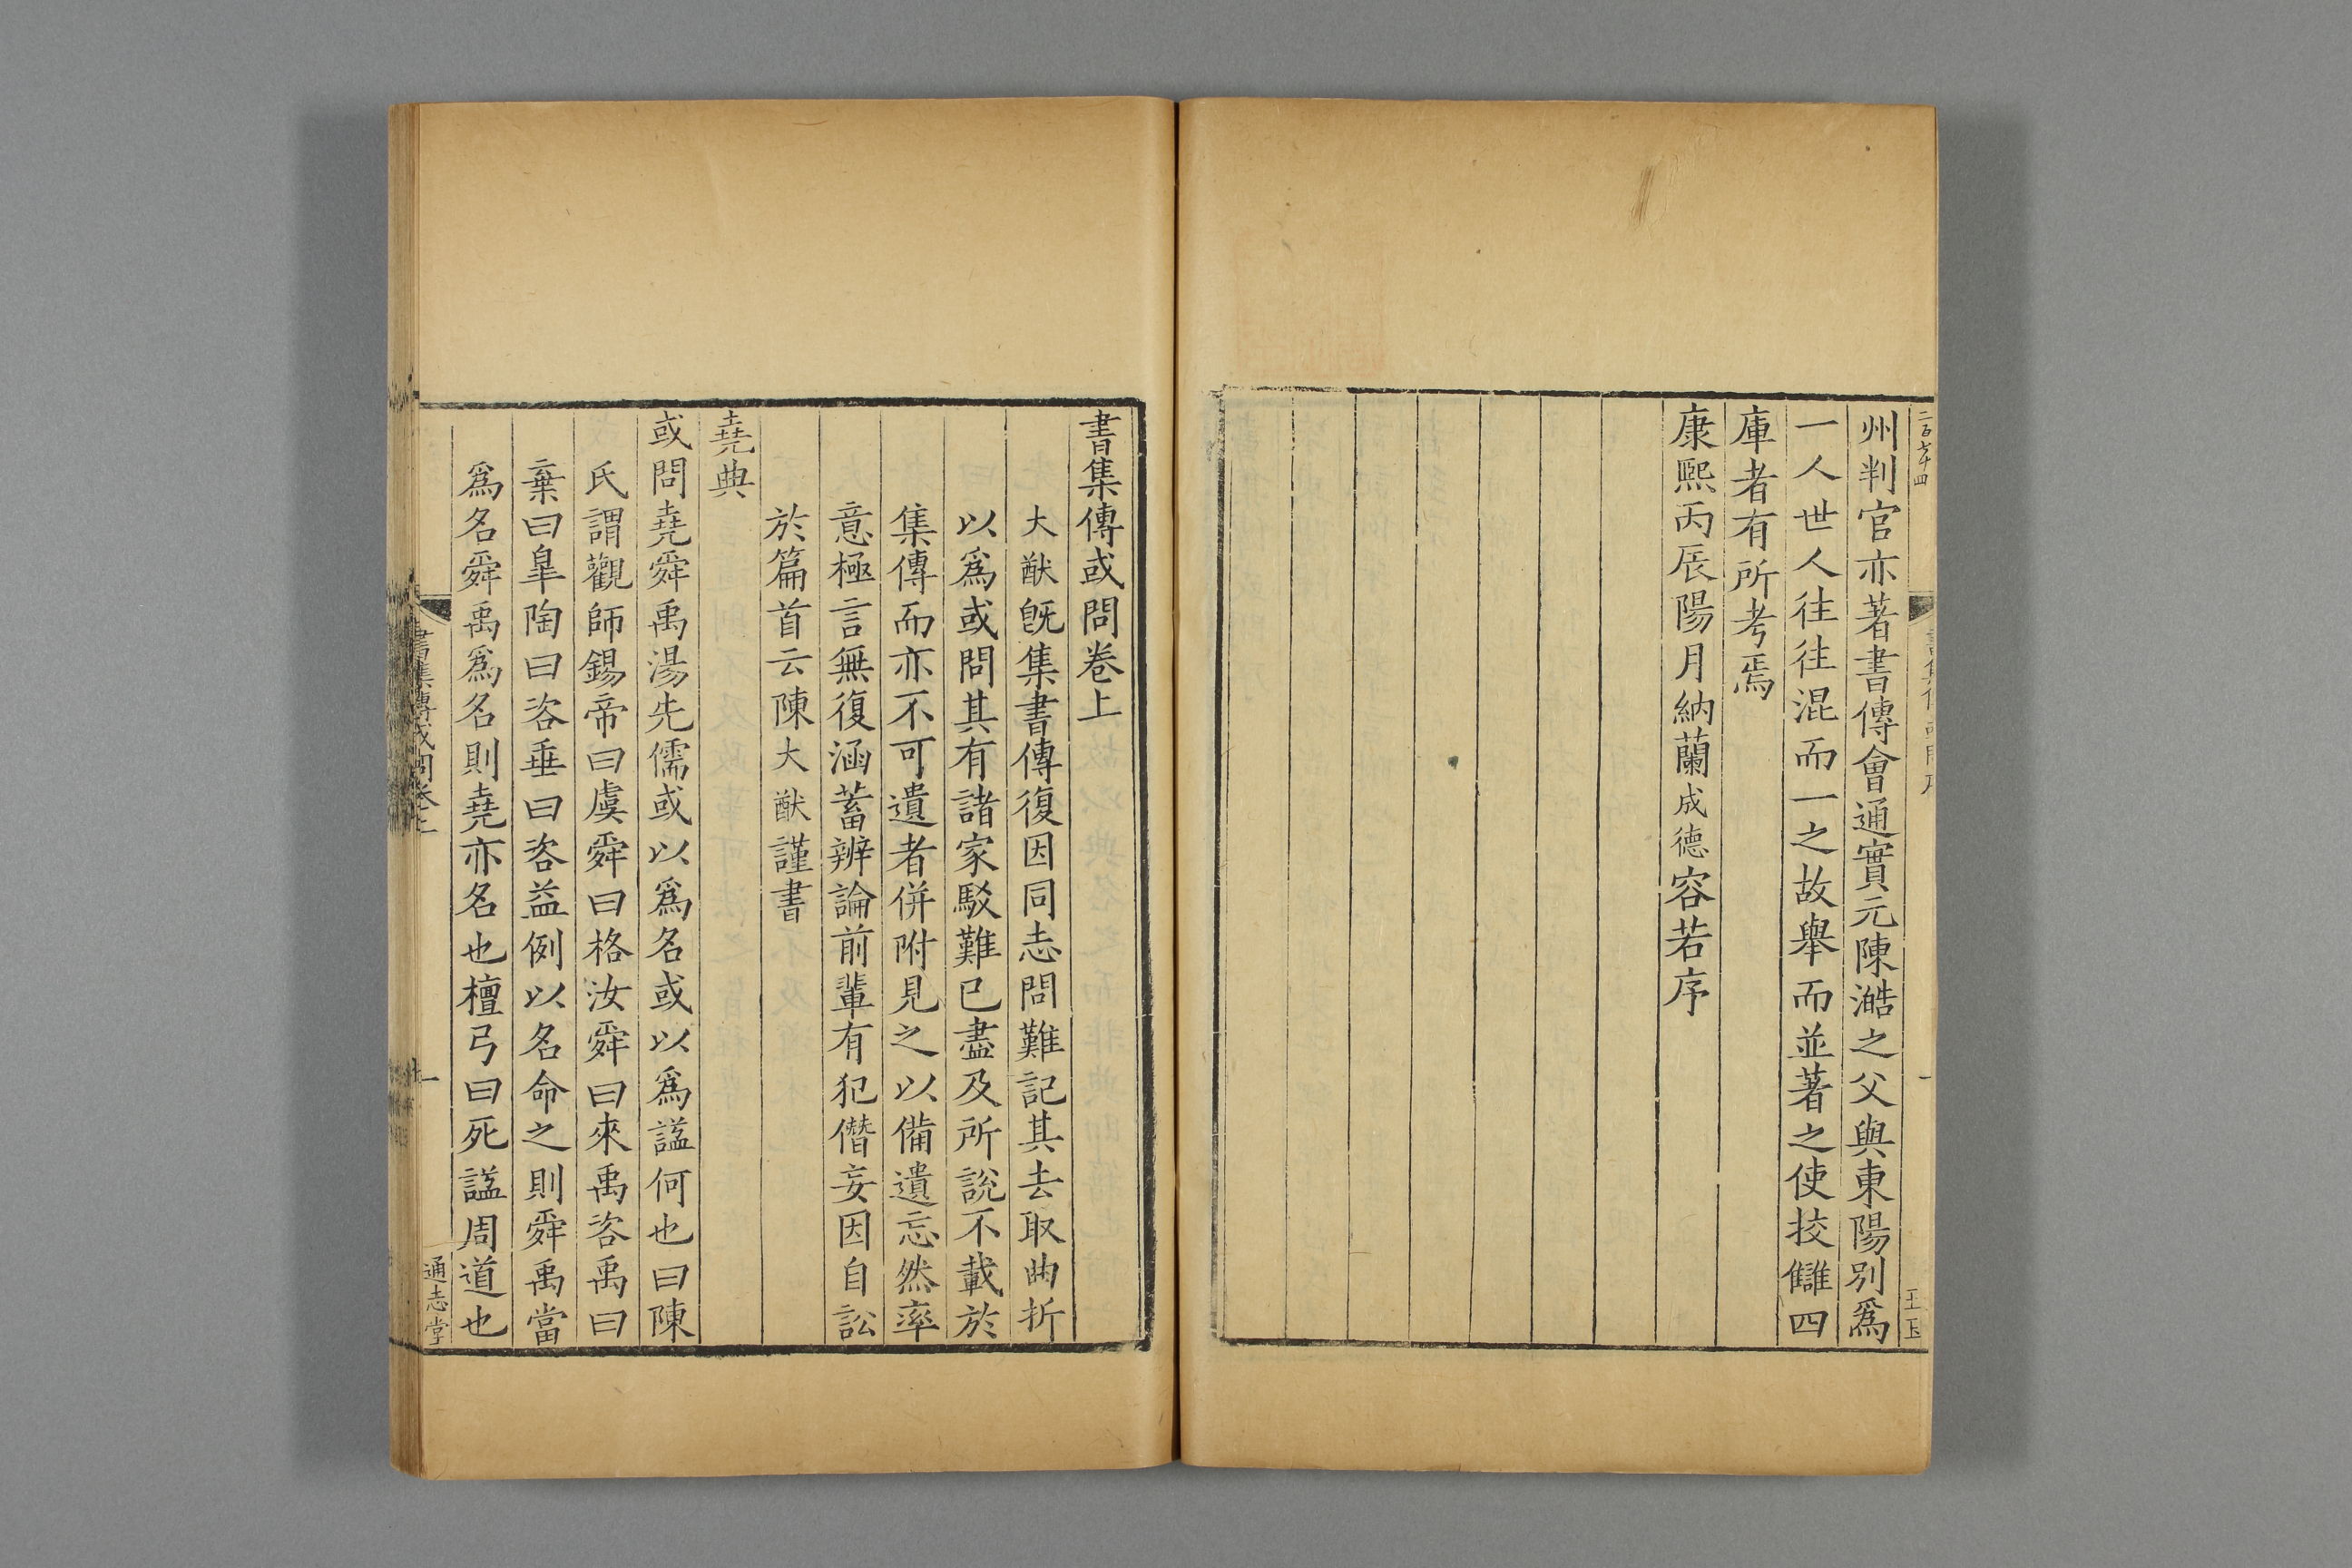 二百七十四
州判官亦著書傳會通實元陳澔之父與東陽別爲
一人世人往往混而一之故舉而並著之使挍讎四
庫者有所考焉
康熙丙辰陽月納蘭成德容若序
書集傳或問卷上
大猷旣集書傳復因同志問難記其去取曲折
以爲或問其有諸家駁難已盡及所說不載於
集傳而亦不可遺者併附見之以備遺忘然率
意極言無復涵蓄辨論前輩有犯僭妄因自訟
於篇首云陳大猷謹書
堯典
或問堯舜禹湯先儒或以爲名或以爲謚何也曰陳
氏謂觀師錫帝曰虞舜曰格汝舜曰來禹咨禹曰
棄曰臯陶曰咨垂曰咨益例以名命之則舜禹當
爲名舜禹爲名則堯亦名也檀弓曰死謚周道也
書集傳或問卷上
一
通志堂